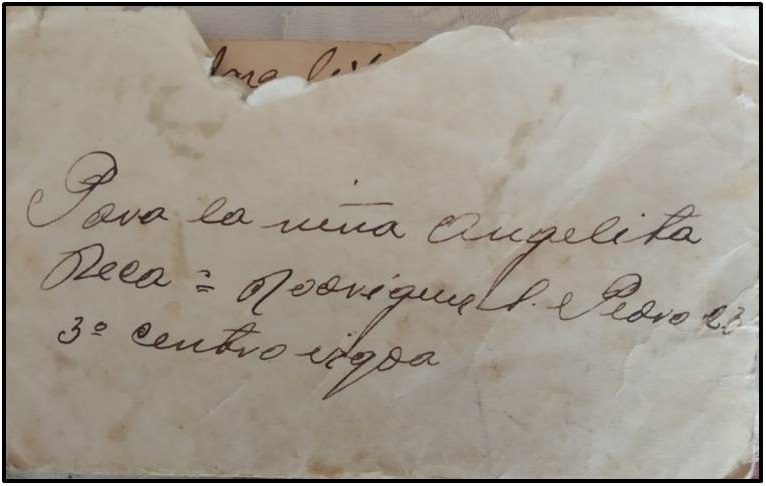 Para la niña Angelita
Reca = Rodriguez S. Pedro 23
3º centro izqda